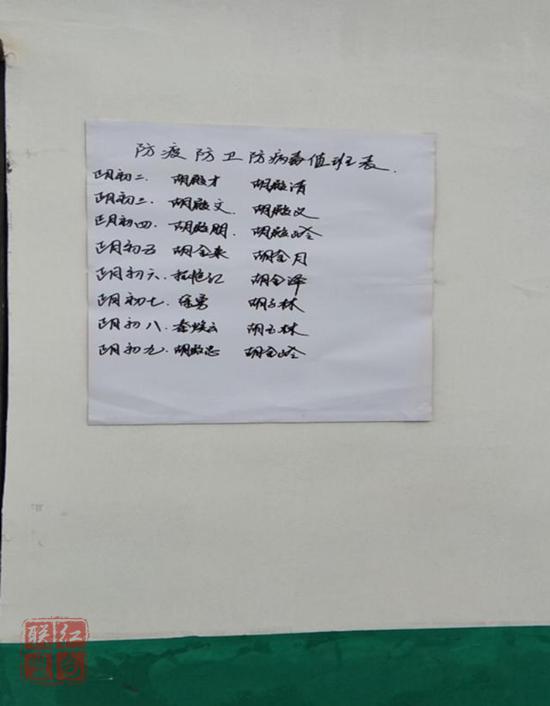 防疫防卫防病毒值班表.
正月初二. 胡殿才 胡殿清
正月初三. 胡殿文. 胡殿义
正月初四. 胡殿朋. 胡殿岭
正月初五 胡金来 胡金月
正月初六. 胡金泽
正月初七. 徐勇 胡玉林
正月初八. 秦焕云 胡玉林
正月初九. 胡殿忠 胡金岭
联红